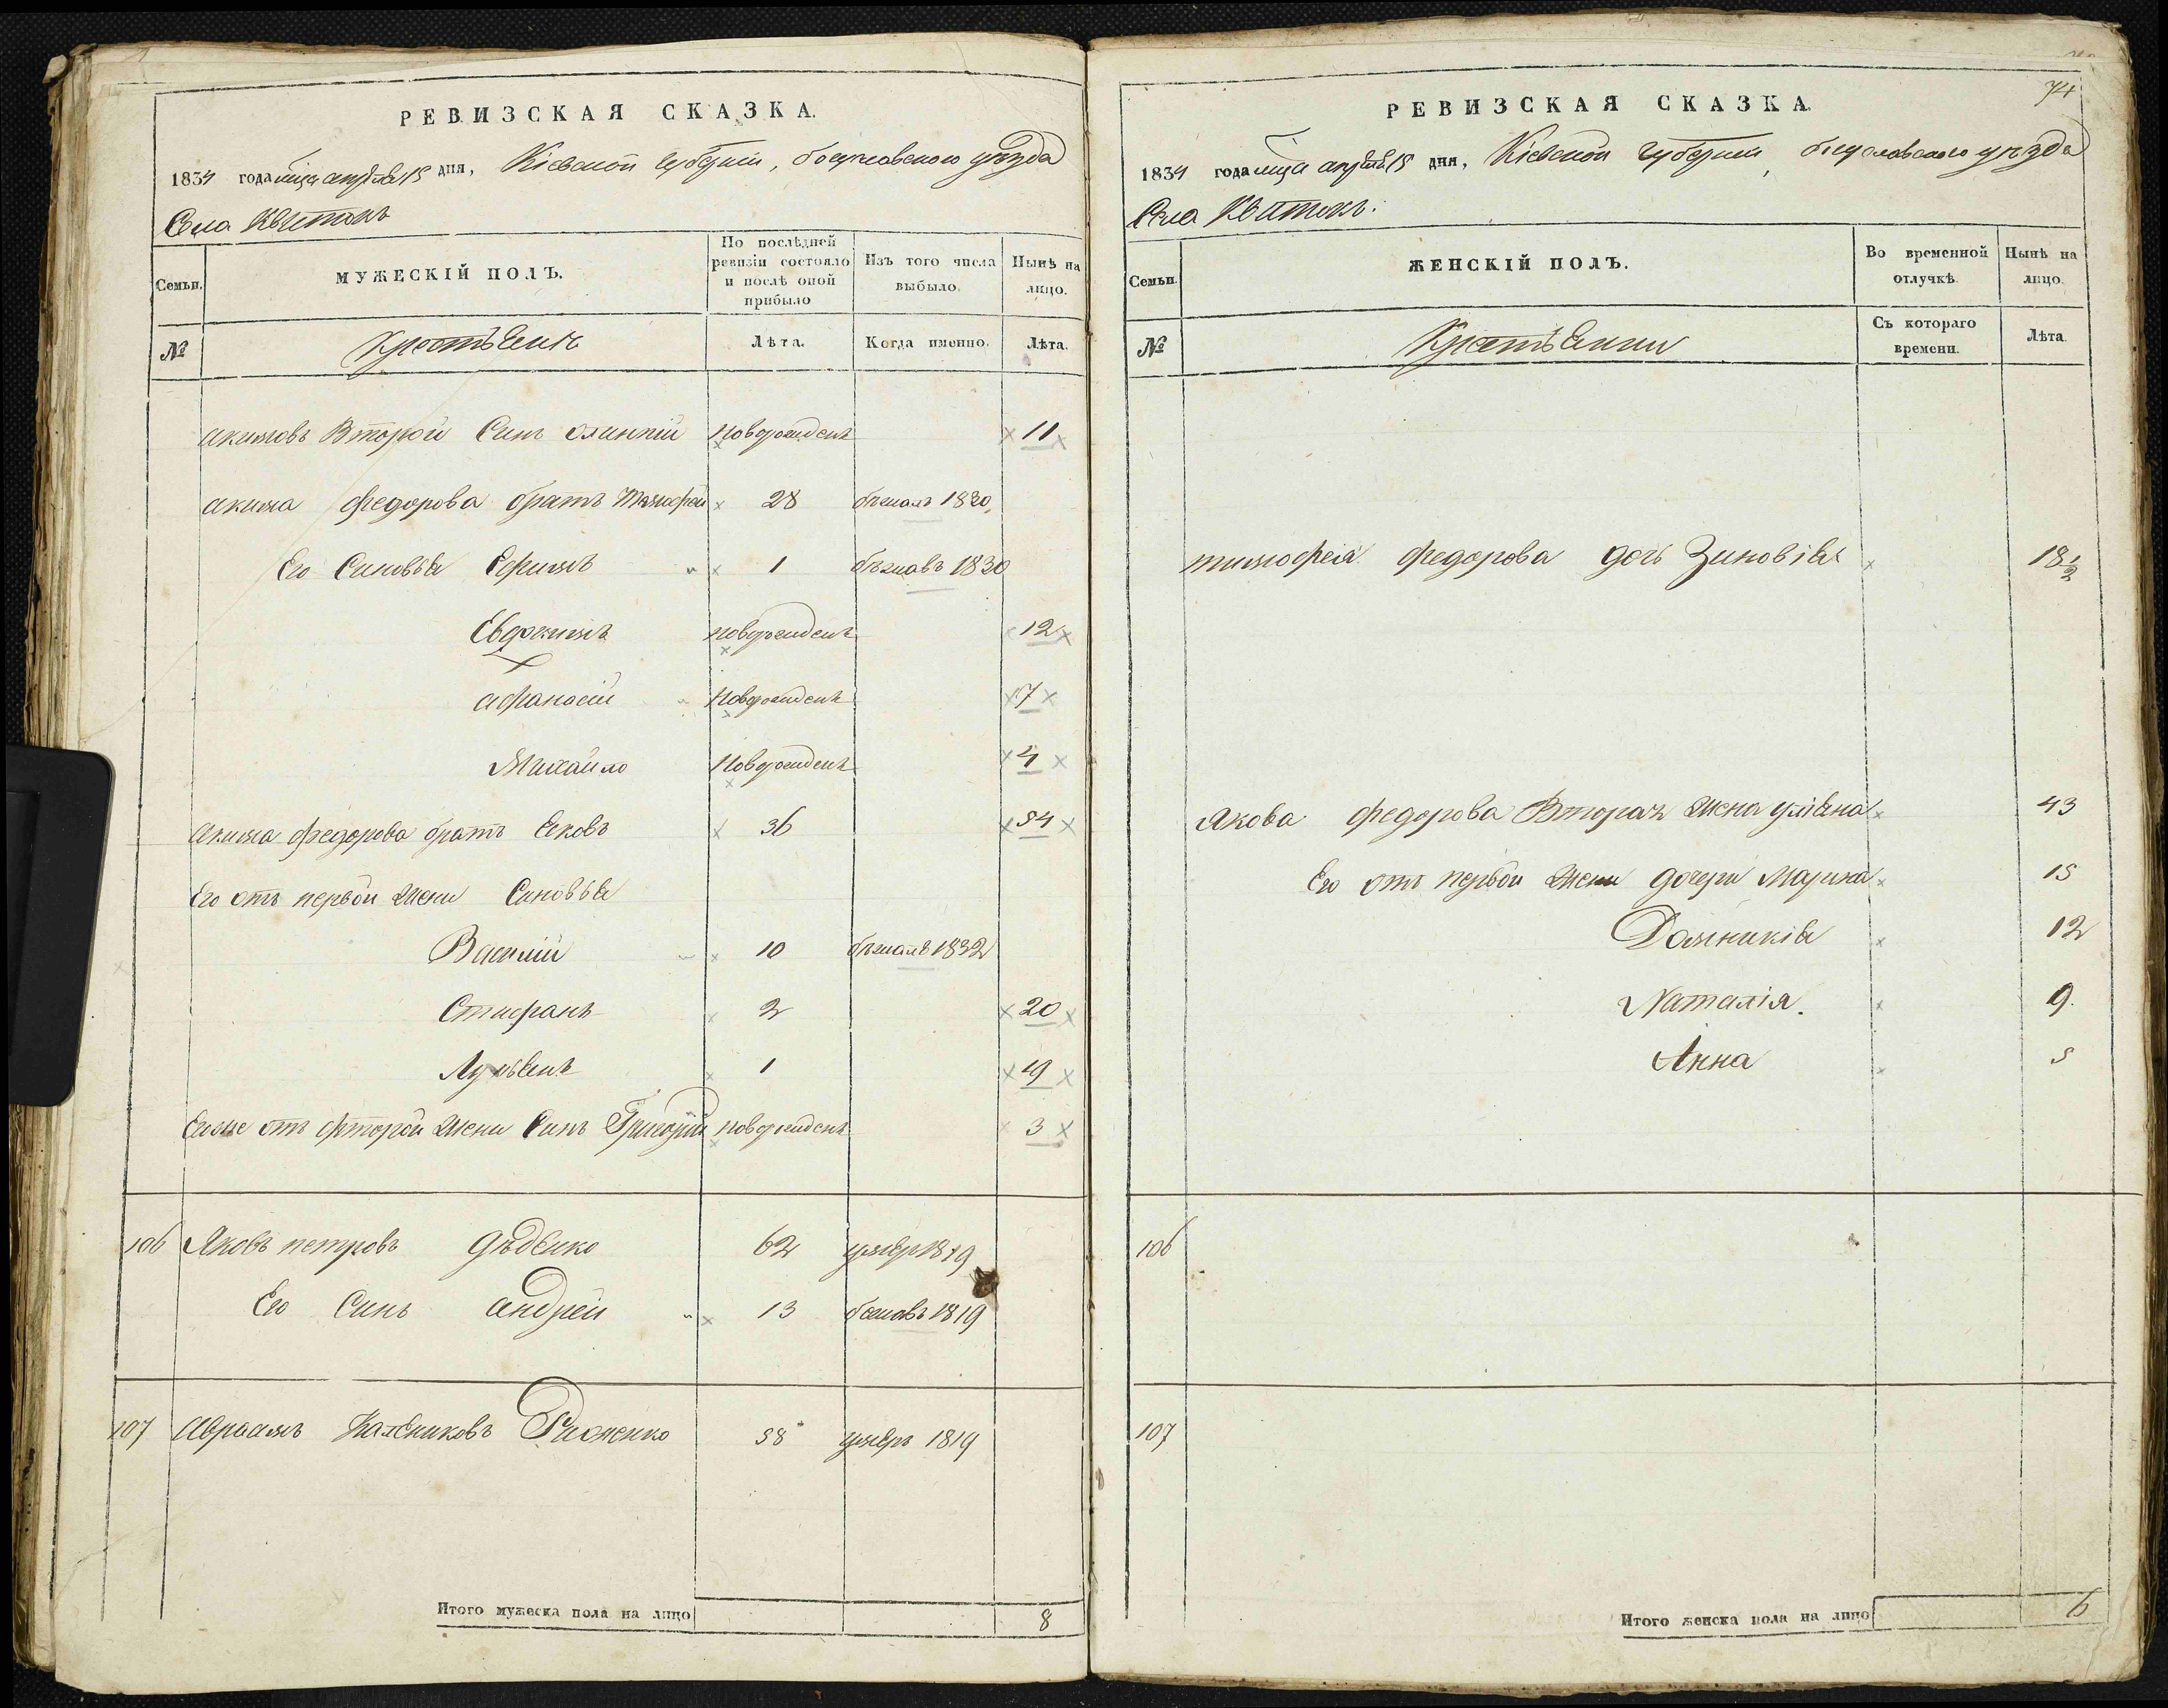 РЕВИЗСКАЯ СКАЗКА.
1834 года мца апреля 15 дня, Кіевской губерніи, богуславского уезда
Села Квитокъ
Семьи.
МУЖЕСКІЙ ПОЛЪ.
По послѣдней ревизіи состояло и послѣ оной прибыло
Изъ того числа выбыло.
Нынѣ на лицо.
№
Крестьянъ
Лѣта.
Когда именно.
Лѣта.
акимовъ Второй Синъ олимпій новорожденъ 11
акима федорова братъ Тимофей 28 бежалъ 1830,
Его Синовья Ефимъ 1 бежавъ 1830
Евдокимъ новорожденъ 12
афанасій новорожденъ 7
Михайло новорожденъ 4
акима федорова братъ Яковъ 36 54
Его отъ первой жени Синовья
Василій 10 бежалъ 1832
Стефанъ 2 20
Лукьянъ 1 19
Егоже отъ фторой жени Синъ Григорій новорожденъ 3
106 Яковъ петровъ дѣденко 62 умеръ 1819
Его Синъ андрей 13 бежавъ 1819
107 Авраамъ Калениковъ 58 умеръ 1819
Итого мужеска пола на лицо 8
74
РЕВИЗСКАЯ СКАЗКА.
1834 года мца апреля 15 дня, Кіевской губерніи, богуславского уезда
Села Квитокъ.
Семьи.
ЖЕНСКІЙ ПОЛЪ.
Во временной отлучкѣ.
Нынѣ на лицо.
№
Крестьянки
Съ котораго времени.
Лѣта.
тимофея федорова дочь Зиновія 18 1/2
Якова федорова Вторая жена уліяна 43
Его отъ первой жени дочери Марина 15
Домникія 12
Наталія. 9.
Анна 5
106
107
Итого женска пола на лицо 6